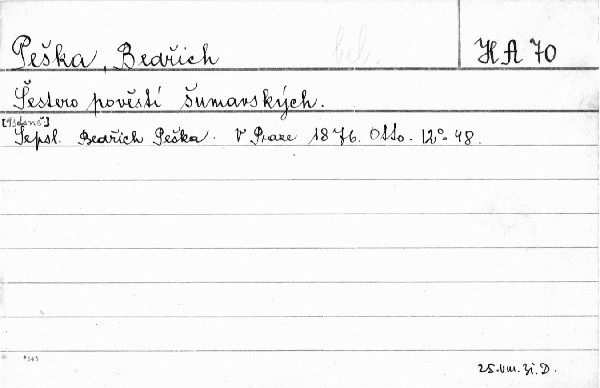 Peška, Bedřich
HA 70
Šestero pověstí šumavských.
Sepsl. Bedřich Peška. V Praze 1876. Otto. 12° 48.
25. VIII. 31. D.